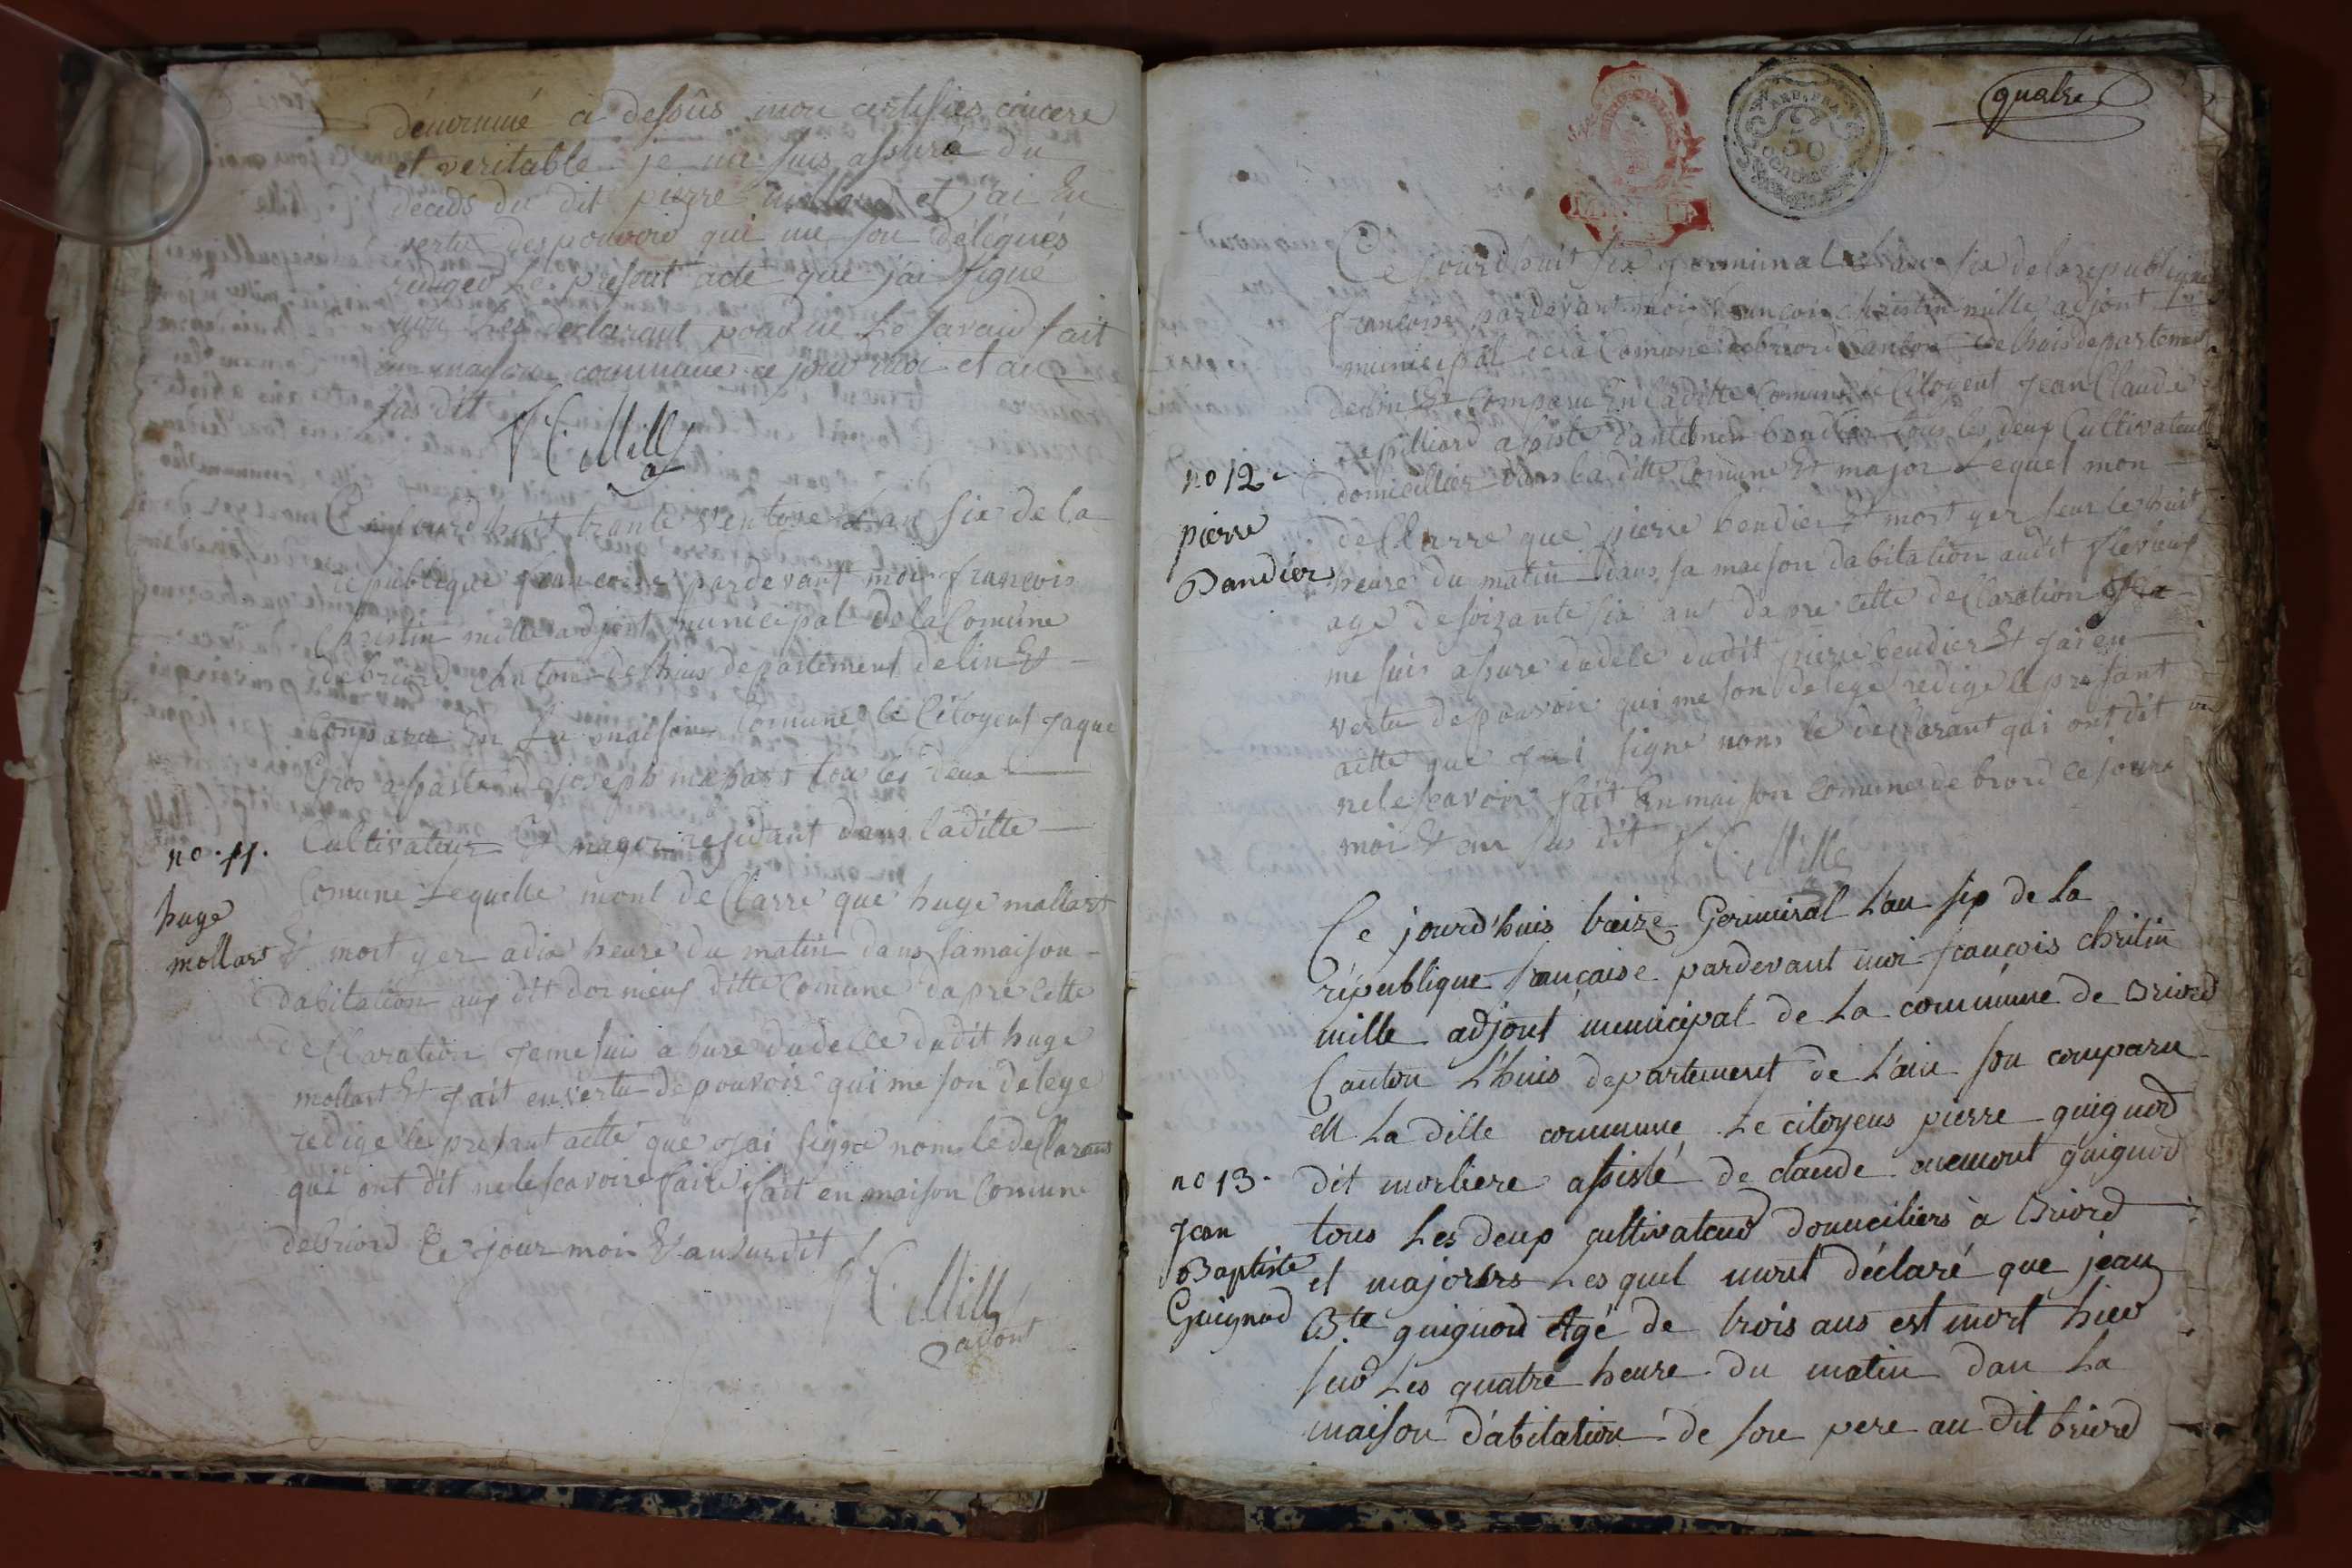 dénommé ci dessus mon certifiés cincere
et veritable je me suis assuré du
décéds du dit pierre mollard et j'ai en
vertu des pouvoir qui me son délégués
rédiger le présent acte que j'ai signé
non les déclarant pour ne le savoir fait
en maison commune ce jour moi et an
sus dit
F C Mille
a
Ce jourdhuit trante ventose l'an six de la
republique francoise pardevant moi francois
Christin mille adjont municipal de la Comune
de briord Canton de lhuis departement de lin Et
Comparu En La maison Comune le Citoyent jaque
Gros asisté de joseph tou les deux
no. 11.
Cultivateur Et magor residant dans la ditte
Comune Lequelle mont deClarre que huge mollart
huge
mollart
Et mort yer a dix heure du matin dans sa maison
dabitation aux dit dornieux ditte Comune dapre cette
deClaration je me suis assure du delce du dit huge
mollart Et j'ait en vertu de pouvoir qui me son delege
redige le presant actte que j'ai signe nons le deClarant
qui ont dit ne le scavoir faire fait en maison Comune
de briord Ce jour moi Et an sus dit
F C Mille
adjont
quatre
REP. FRA.
50
CENTIMES
Ce jourdhuit six germinal l'an six de la republique
francoise pardevant moi francois christin mille adjont
municipal de la Comune de briord Canton de lhuis departement
de lin Et Comparu En la ditte Comune le Citoyent jean Claude
asisté d'antoine bendier tous les deux Cultivateur
no 12.
domicillier dans la ditte Comune Et major Lequel mon
pierre
Bandier
deClarre que pierre bendier Et mort yer seur le huit
heure du matin dans sa maison dabitation audit flevieux
age de soizante six ans dapre cette deClaration je
me suis assure du dele dudit pierre bendier Et j'ai en
vertu de pouvoir qui me son delege redige le presant
actte que j'ai signe nons le deClarant qui ont dit
ne le scavoir fait En maison Comune de briord ce jour
moi Et an sus dit F C Mille
Ce jourd'huis treize Germinal L'an six de la
république française pardevant moi françois chritin
mille adjont municipal de La commune de Briord
Canton L'huis département de L'ain son comparu
en La ditte commune Le citoyens pierre guignod
no 13.
dit morliere assisté de claude guignod
Jean
tous Les deux cultivateur domiciliers à Briord
Baptiste
et majeurs Lesquel mont déclaré que jean
Guignod
B.te guignod Agé de trois ans est mort hier
sur Les quatre heure du matin dan La
maison d'abitation de son pere au dit briord